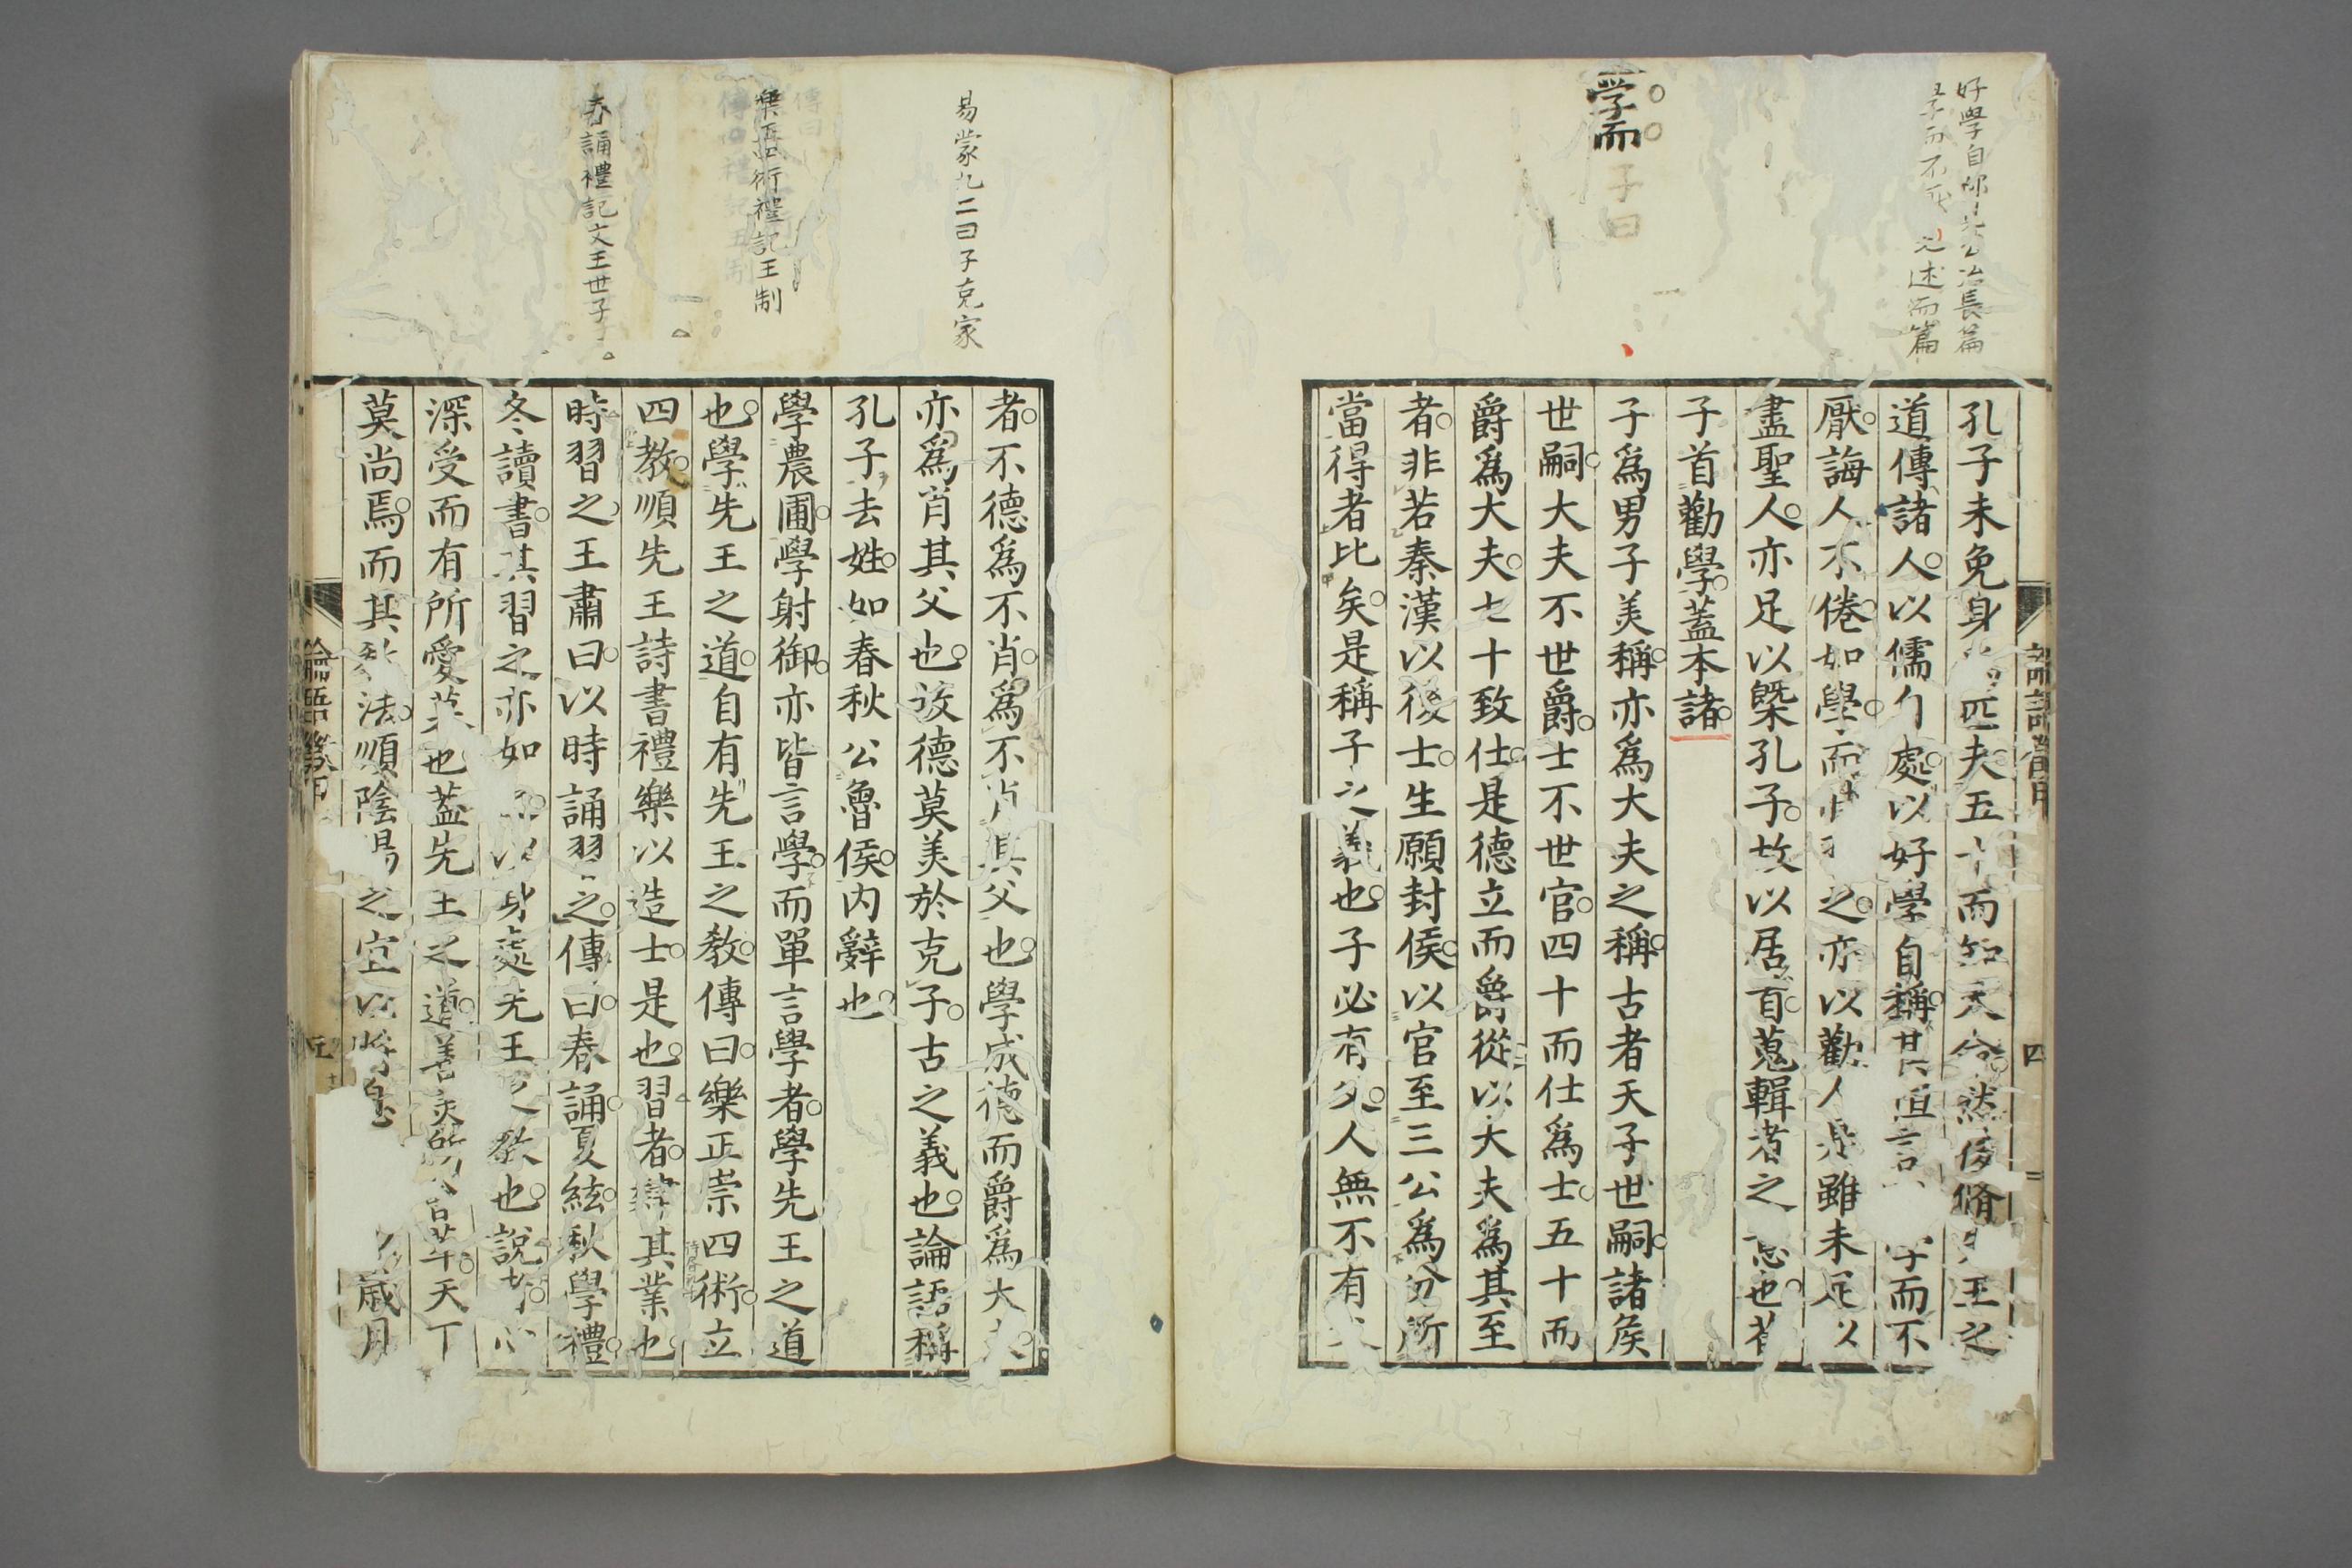 好學自
述而篇
學而
子曰
孔子未免身匹夫五十而知天命然後脩王之
道傳諸人以儒處以好學自稱其言學而不
厭誨人不倦如學而之亦以勸人是雖未足以
盡聖人亦足以槩孔子故以居首蒐輯者之意也
子首勸學蓋本諸
子爲男子美稱亦爲大夫之稱古者天子世嗣諸矦
世嗣大夫不世爵士不世官四十而仕爲士五十而
爵爲大夫七十致仕是德立而爵從以大夫爲其至
者非若秦漢以後士生願封侯以官至三公爲分所
當得者比矣是稱子之義也子必有父人無不有
論語
四
易蒙九二曰子克家
樂正四術禮記王制
春誦禮記文王世子
者不德爲不肖爲不肖其父也學成德而爵爲大夫
亦爲肖其父也故德莫美於克子古之義也論語稱
孔子去姓如春秋公魯侯内辭也
學農圃學射御亦皆言學而單言學者學先王之道
也學先王之道自有先王之教傳曰樂正崇四術立
四教順先王詩書禮樂以造士是也習者肄其業也
時習之王肅曰以時誦習之傳曰春誦夏絃秋學禮
冬讀書其習之亦如以身處先王之教也說
深受而有所愛慕也蓋先王之道善天下
莫尚焉而其教法順陰陽之宜以歲月
論語
五